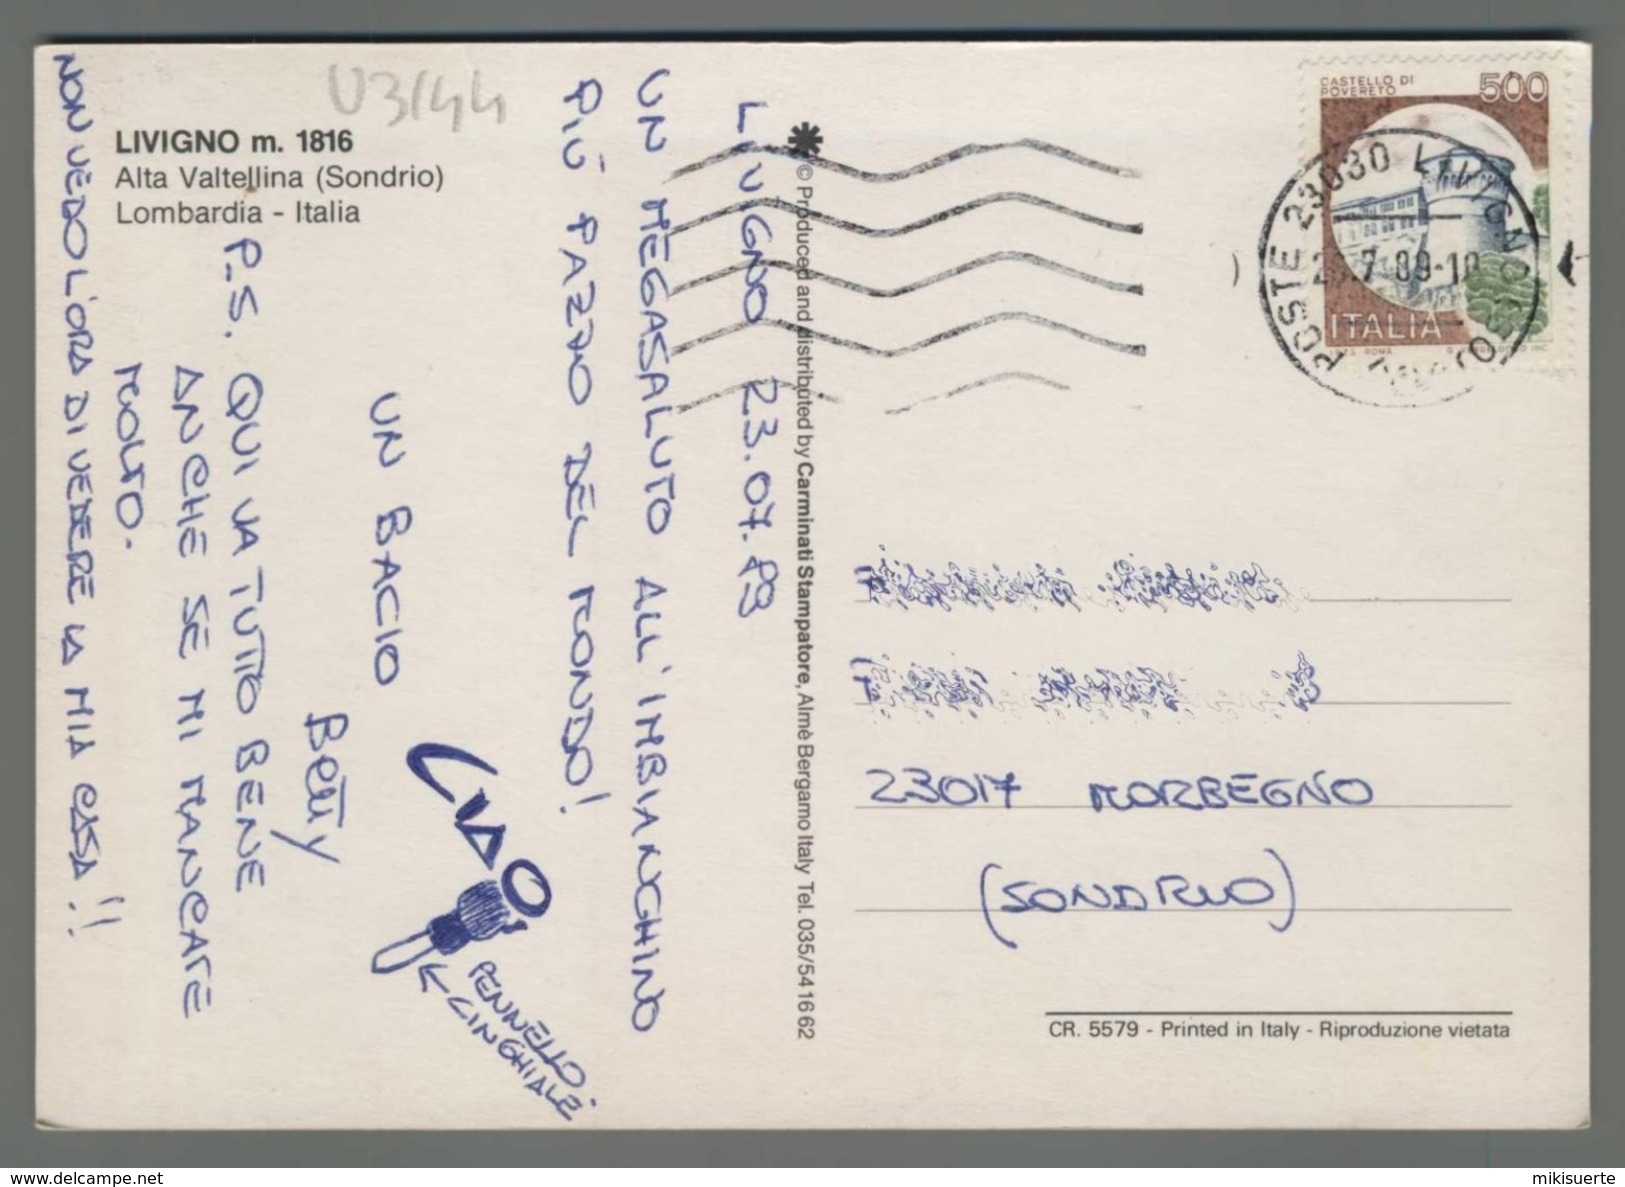 V3/44
LIVIGNO m. 1816
Alta Valtellina (Sondrio)
Lombardia - Italia
LIVIGNO 23.07.89
UN MEGASALUTO ALL'IMBIANCHINO
PIÙ PAZZO DEL MONDO!
UN BACIO
Betty
P.S. QUI VA TUTTO BENE
ANCHE SE MI MANCATE
MOLTO.
NON VEDO L'ORA DI VEDERE LA MIA CASA!!
CIAO
PENNELLO
CINGHIALE
© Produced and distributed by Carminati Stampatore, Almè Bergamo Italy Tel. 035/541662
CASTELLO DI
ROVERETO
500
ITALIA
POSTE 23030 LIVIGNO
7.89-18
23017 MORBEGNO
(SONDRIO)
CR. 5579 - Printed in Italy - Riproduzione vietata
mikisuerte